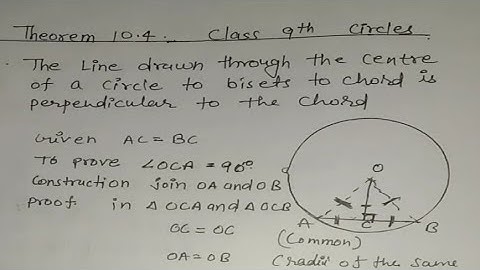 Theorem 10.4. Class 9th Circles.
The Line drawn through the centre
of a circle to bisets to chord is
perpendicular to the chord
Given AC = BC
To prove ∠OCA = 90°
Construction join OA and OB
Proof in △ OCA and △ OCB
OC = OC (Common)
OA = OB (radii of the same
O
A C B